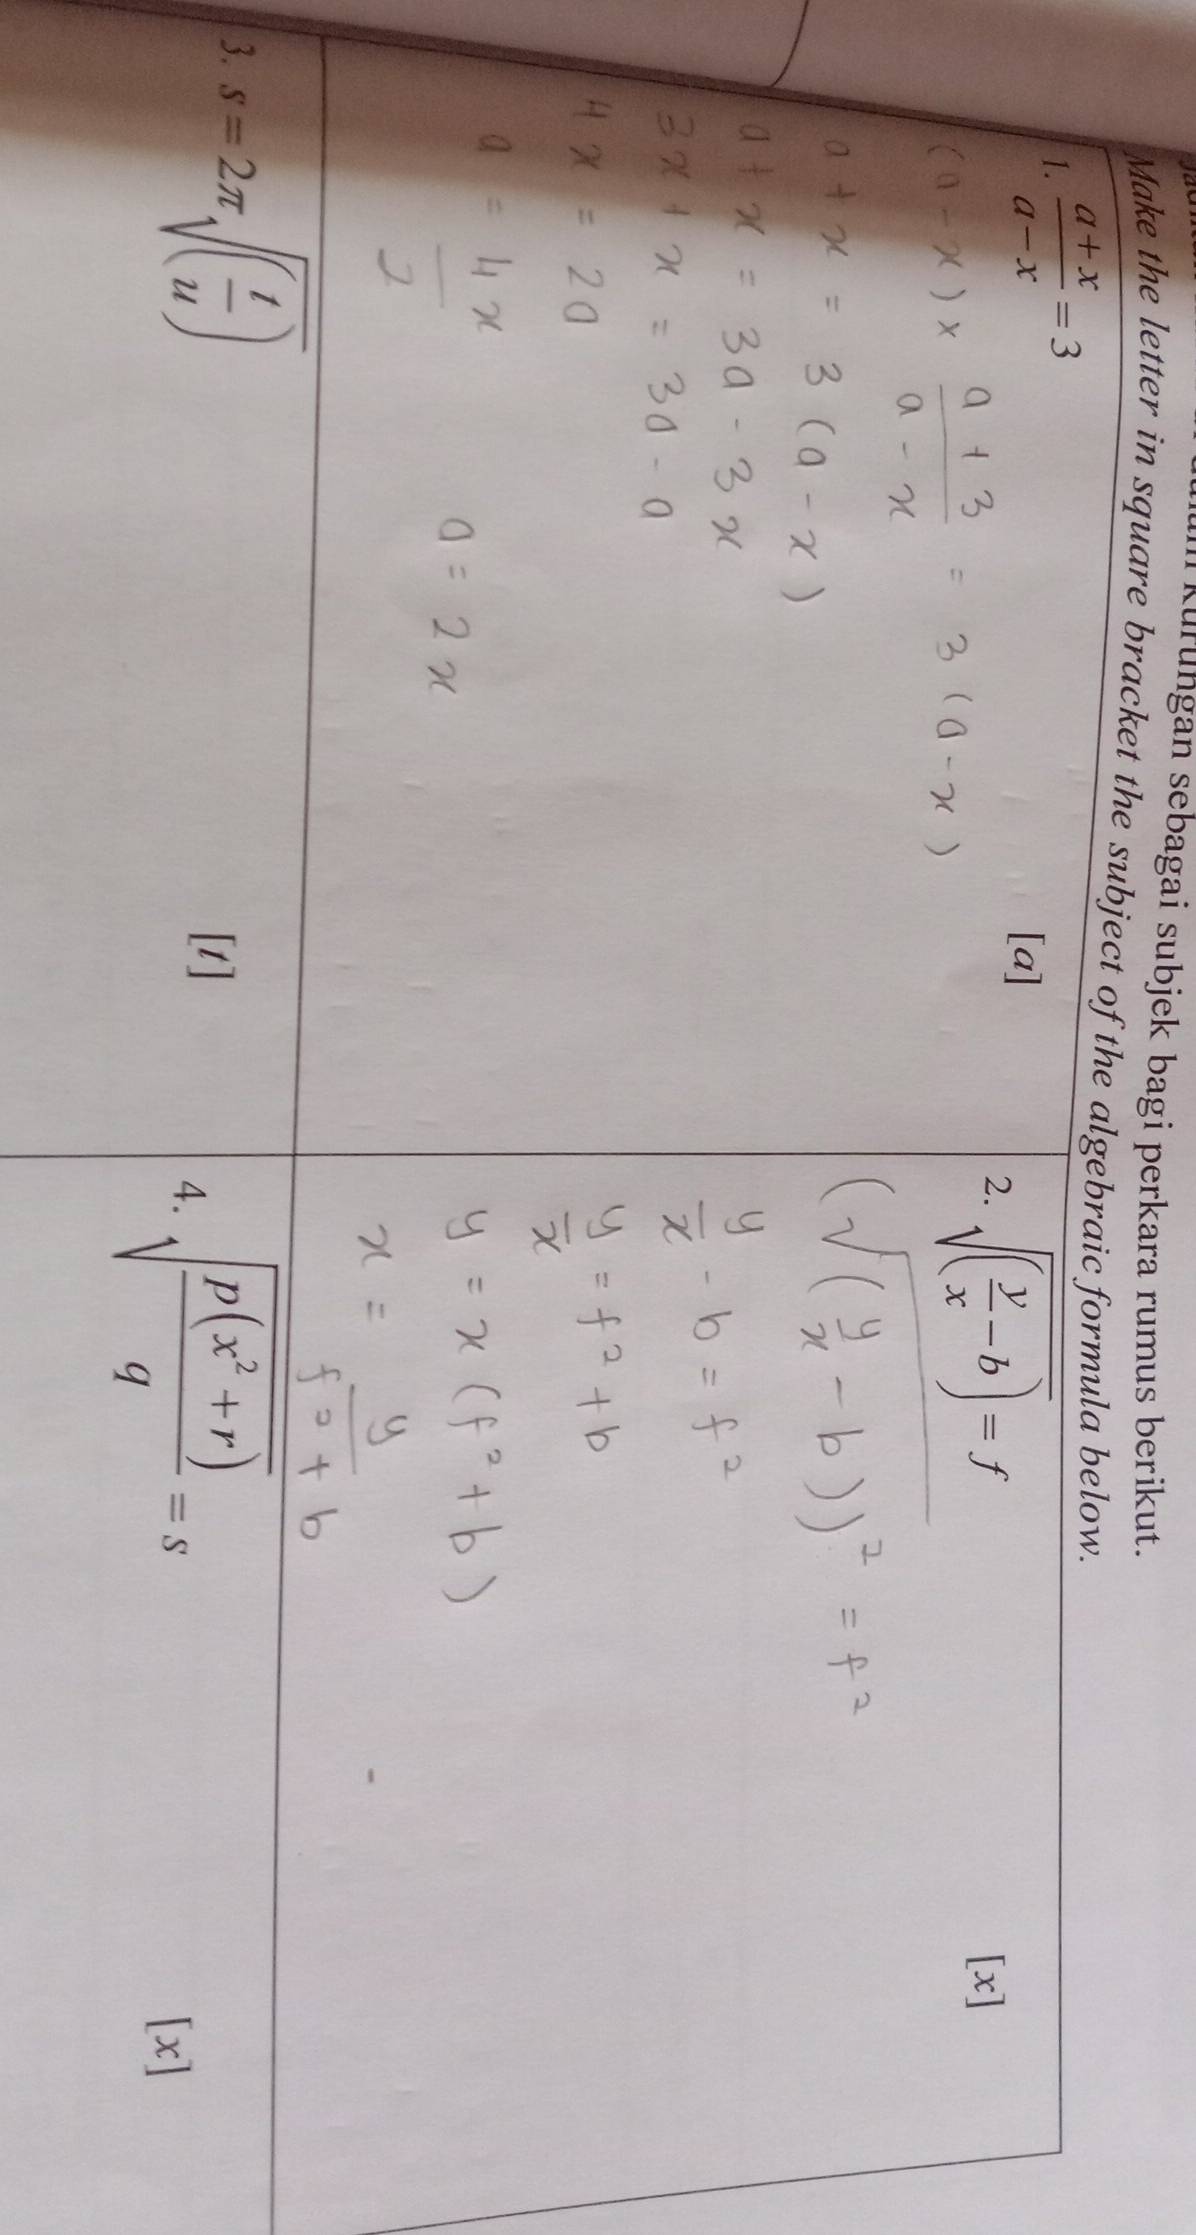 kurungan sebagai subjek bagi perkara rumus berikut.
Make the letter in square bracket the subject of the algebraic formula below.
1. (a+x)/(a−x) = 3 [a]
(a - x) x (a + 3)/(a - x) = 3 (a - x)
a + x = 3 (a - x)
a + x = 3a - 3x
3x + x = 3a - a
4x = 2a
a = 4x/2
a = 2x
2. √(y/x − b) = f [x]
(√(y/x - b))² = f²
y/x - b = f²
y/x = f² + b
y = x (f² + b)
x = y/(f² + b)
3. s = 2π√(t/u) [t]
4. √(p(x² + r)/q) = s [x]